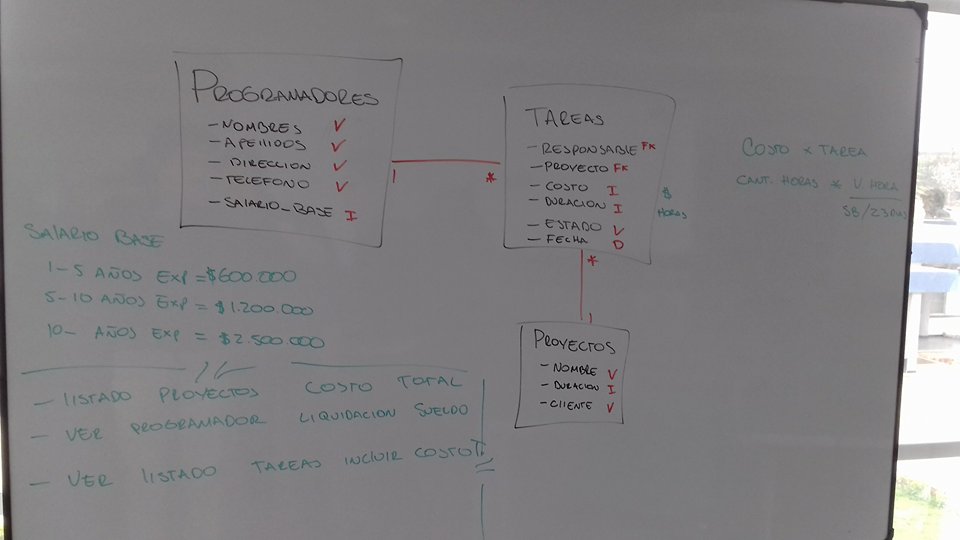 PROGRAMADORES
- NOMBRES V
- APEllIDOS V
- DIRECCION V
- TELEFONO V
- SALARIO_BASE I
1
*
TAREAS
- RESPONSABLE FK
- PROYECTO FK
- COSTO I $
- DURACION I HORAS
- ESTADO V
- FECHA D
*
1
PROYECTOS
- NOMBRE V
- DURACION I
- ClIENTE V
COSTO x TAREA
CANT. HORAS * V HORA
SB/23
SALARIO BASE
1-5 AÑOS EXP = $600.000
5-10 AÑOS EXP = $1.200.000
10- AÑOS EXP = $2.500.000
- lISTADO PROYECTOS COSTO TOTAL
- VER PROGRAMADOR LIQUIDACION SUELDO
- VER lISTADO TAREAS INCLUIR COSTO